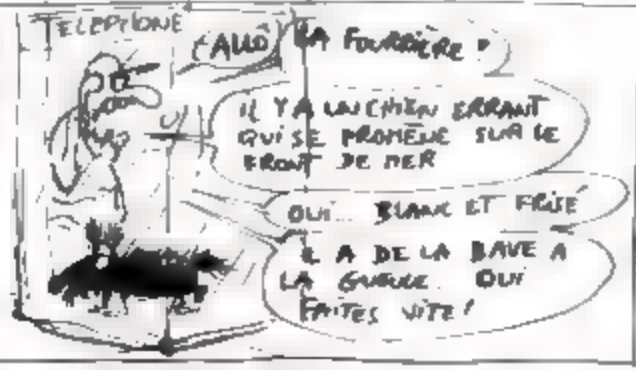 TELEPHONE
ALLÔ LA FOURRIÈRE ?
IL Y A UN CHIEN ERRANT
QUI SE PROMÈNE SUR LE
FRONT DE MER
OUI... BLANC ET FRISÉ
IL A DE LA BAVE A
LA GUEULE. OUI
FAITES VITE!